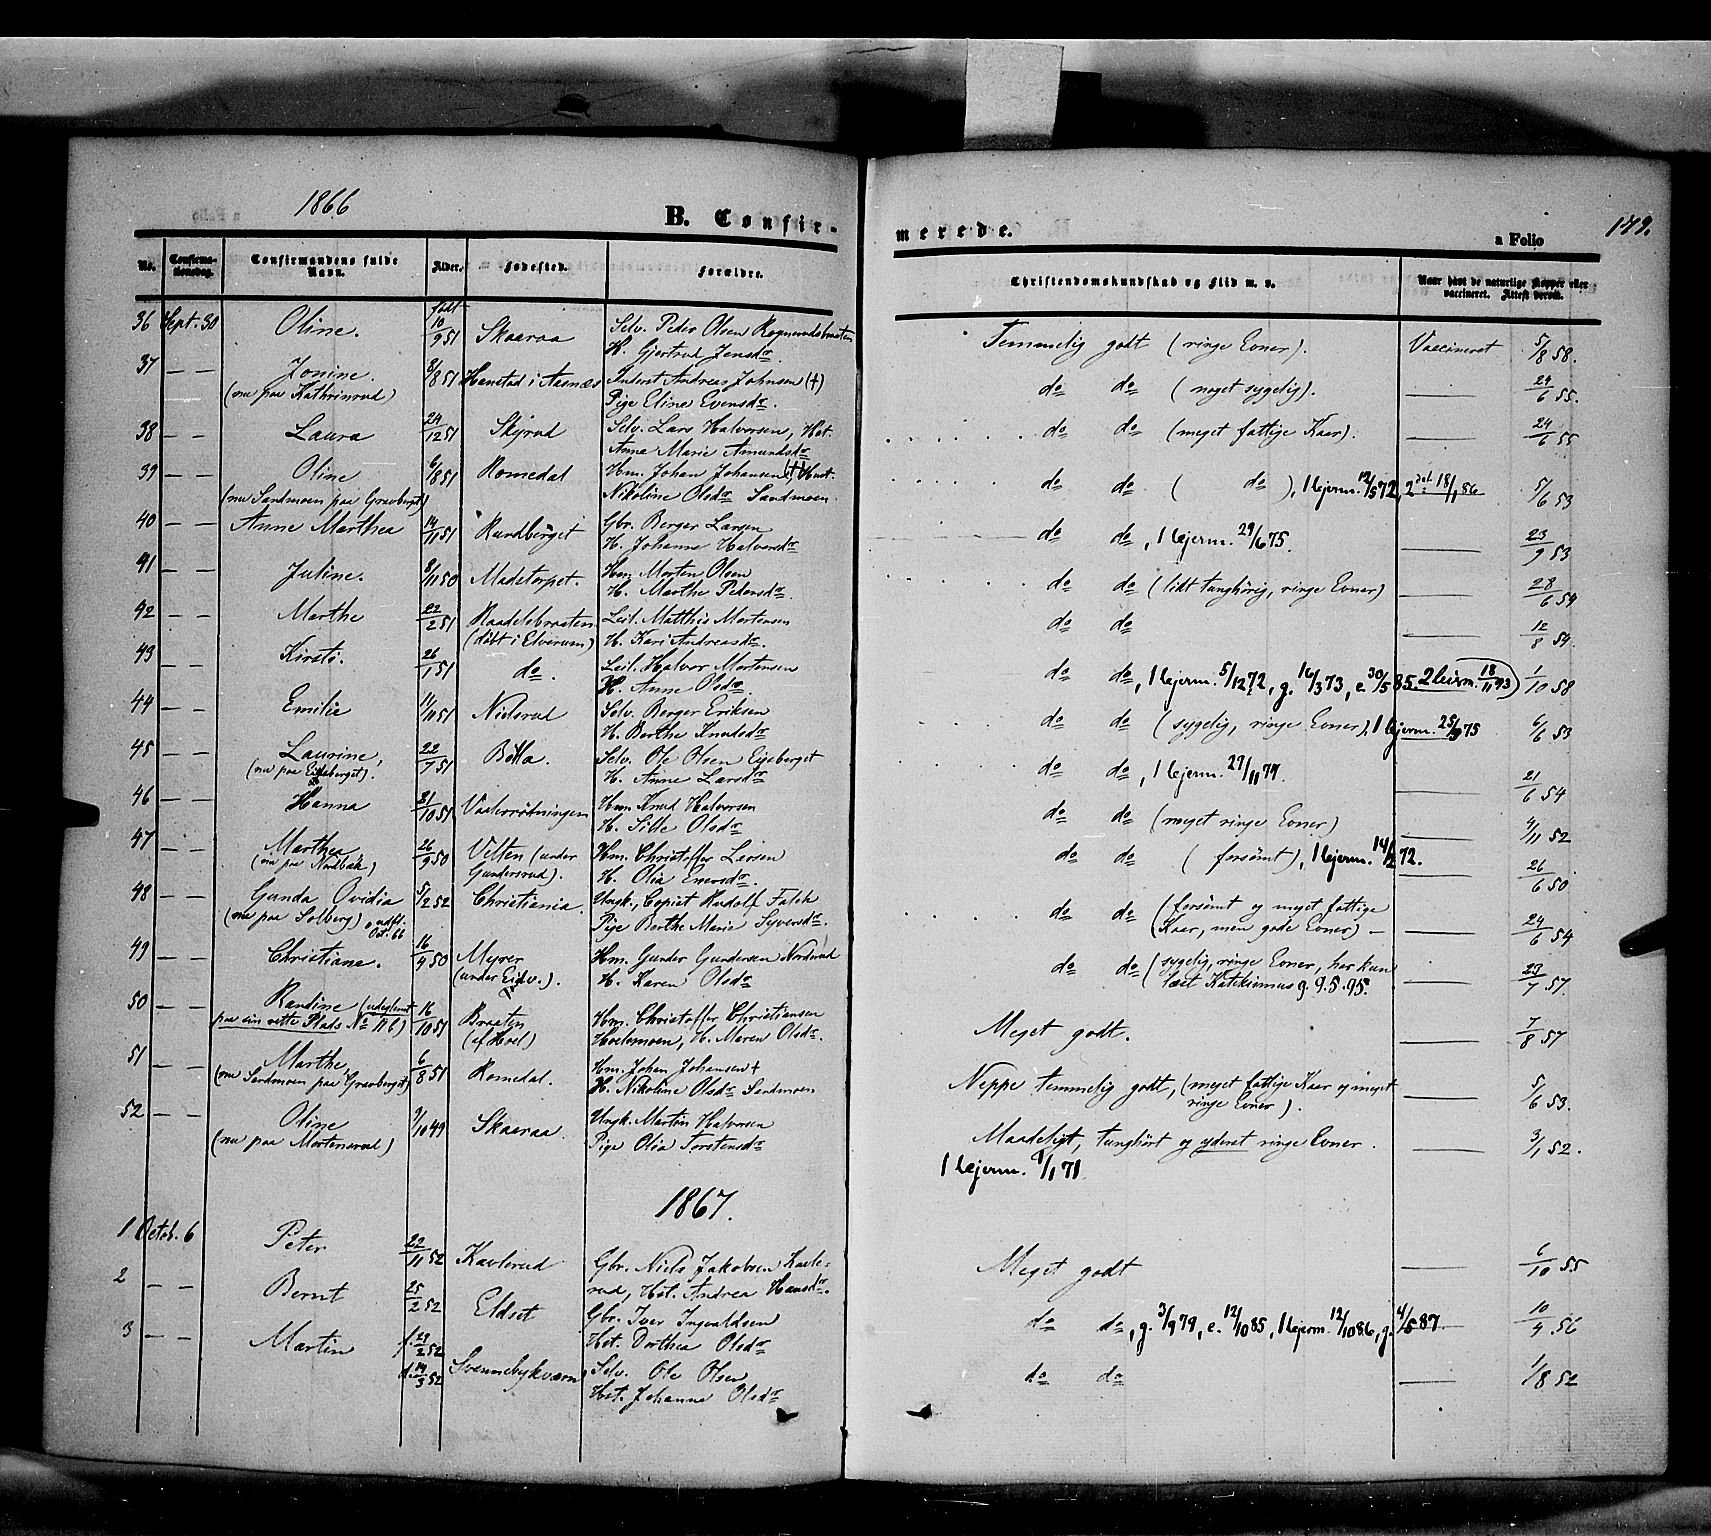 1866
B. Confir-
merede.
a Folio
179.
No.
Confirma-
tionsdag.
Confirmandens fulde
Navn.
Alder.
Fødested.
Forældre.
Christendomskundskab og Flid m. v.
Naar havt de naturlige Kopper eller
vaccineret. Attest derom.
36 Sept. 30 Oline. født 10/9 51 Skaaraa Selv. Peder Olsen
H. Gjertrud Jensdr
Temmelig godt (ringe Evner). Vaccineret 5/8 58.
37 — — Jonine. 8/8 51 Hanstad i Aasnæs Inderst Andreas Johnsen (†)
(nu paa Kathrinrud) Pige Eline Evensdr.
do do (noget sygelig). — 24/6 55.
38 — — Laura 24/12 51 Skyrud Selv. Lars Halvorsen, Hst.
Anne Marie Amundsdr
do do (meget fattige Kaar). — 24/6 55
39 — — Oline 6/8 51 Romedal Hm. Johan Johansen (†) Hust.
(nu Sandmoen paa Gravberget) Nikoline Olsdr Sandmoen.
do do ( do ), 1 lejerm. 12/5 72, 2det 18/1 86 5/6 53
40 — — Anne Marthea 14/11 51 Rundberget Gbr. Berger Larsen
H. Johanne Halvorsdr
do do, 1 lejerm. 29/6 75. — 23/9 53
41 — — Juline. 8/11 50 Madstorpet. Hm Morten Olsen
H. Marthe Pedersdr.
do do (lidt tunghörig, ringe Evner) — 28/6 54
42 — — Marthe 22/2 51 Raadelsbraaten Leil. Matthis Mortensen
(döbt i Elverum) H. Kari Andreasdr.
do do — 12/8 54.
43 — — Kirsti. 26/1 51 do. Leil. Halvor Mortensen
H. Anne Olsdr.
do do, 1 lejerm. 5/12 72, g. 16/3 73, e. 30/5 85. 2 leierm. 18/11 93 1/10 58
44 — — Emilie 1/11 51 Nielsrud Selv. Berger Eriksen
H. Berthe Knudsdr
do do (sygelig, ringe Evner), 1 lejerm. 25/9 75 6/6 53
45 — — Laurine, 22/7 51 Bölla. Selv. Ole Olsen Eigeberget
(nu paa Eigeberget). H. Anne Larsdr
do do, 1 lejerm. 27/11 77. — 21/6 54
46 — — Hanna 21/10 51 Vaalerrödningen Hm Knud Halvorsen
H. Sille Olsdr
do do (meget ringe Evner) — 4/11 52
47 — — Marthea 26/9 50 Velten (under Hm. Christoffer Larsen
(nu paa Nordbak) Gundersrud). H. Olia Enersdr.
do do (forsömt), 1 lejerm. 14/2 72. — 26/6 50
48 — — Gunda Ovidia 5/2 52 Christiania. Ungk., Copist Rudolf Falch
(nu paa Solberg) udfl. Oct. 66 Pige Berthe Marie Syversdr.
do do (forsömt og meget fattige
Kaar, men gode Evner) — — 24/6 54
49 — — Christiane. 16/9 50 Myrer Hm. Gunder Gundersen Nordsrud
(under Eidv.). H. Karen Olsdr
do do (sygelig, ringe Evner, har kun
læst Katekismus g. 9.5.95. — 23/7 57.
50 — — Randine (udeglemt 16/10 51 Braaten Hm. Christoffer Christiansen
paa sin rette Plads No 11 b) (af Hoel) Hoelsmoen, H. Maren Olsdr.
Meget godt. — 7/8 57
51 — — Marthe, 6/8 51 Romedal. Hm. Johan Johansen †
(nu Sandmoen paa Gravberget) H. Nikoline Olsdr Sandmoen
Neppe temmelig godt, (meget fattige Kaar og meget
ringe Evner). — 5/6 53.
52 — — Oline 9/10 49 Skaaraa. Ungk. Martin Halvorsen
(nu paa Mortensrud) Pige Olia Torstensdr
Maadeligt, tunghört og yderst ringe Evner. — 3/1 52.
1 lejerm. 8/1 71.
1867.
1 Octob. 6 Peter 22/11 52 Kavlerud Gbr. Niels Jakobsen Kavle-
rud, Hst. Andrea Hansdr.
Meget godt — 6/10 55
2 — — Bernt 25/2 52 Eldset Gbr. Iver Ingvaldsen
Hst. Dorthea Olsdr
do do, g. 3/9 79, e. 12/10 85, 1 lejerm. 12/10 86, g. 4/5 87. — 10/9 56
3 — — Martin f. 23/2 52 Svennebykværn Selv. Ole Olsen
d. 14/3 52 Hst. Johanne Olsdr
do do — 1/8 52